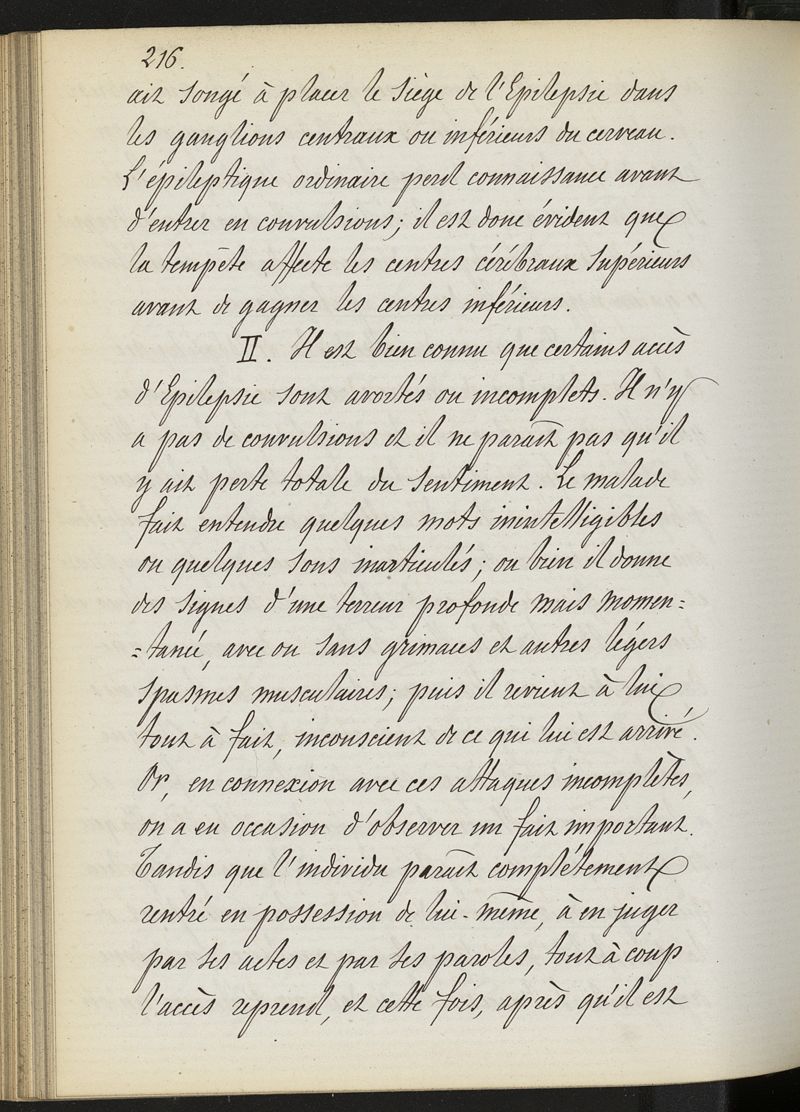 216.
ait songé à placer le siège de l'Epilepsie dans
les ganglions centraux ou inférieurs du cerveau.
L'épileptique ordinaire perd connaissance avant
d'entrer en convulsions; il est donc évident que
la tempête affecte les centres cérébraux supérieurs
avant de gagner les centres inférieurs.
II. Il est bien connu que certains accès
d'Epilepsie sont avortés ou incomplets. Il n'y
a pas de convulsions et il ne paraît pas qu'il
y ait perte totale du sentiment. Le malade
fait entendre quelques mots inintelligibles
ou quelques sons inarticulés; ou bien il donne
des signes d'une terreur profonde mais momen=
=tanée, avec ou sans grimaces et autres légers
spasmes musculaires; puis il revient à lui
tout à fait, inconscient de ce qui lui est arrivé.
Or, en connexion avec ces attaques incomplètes,
on a eu occasion d'observer un fait important.
Tandis que l'individu paraît complétement
rentré en possession de lui-même, à en juger
par ses actes et par ses paroles, tout à coup
l'accès reprend, et cette fois, après qu'il est